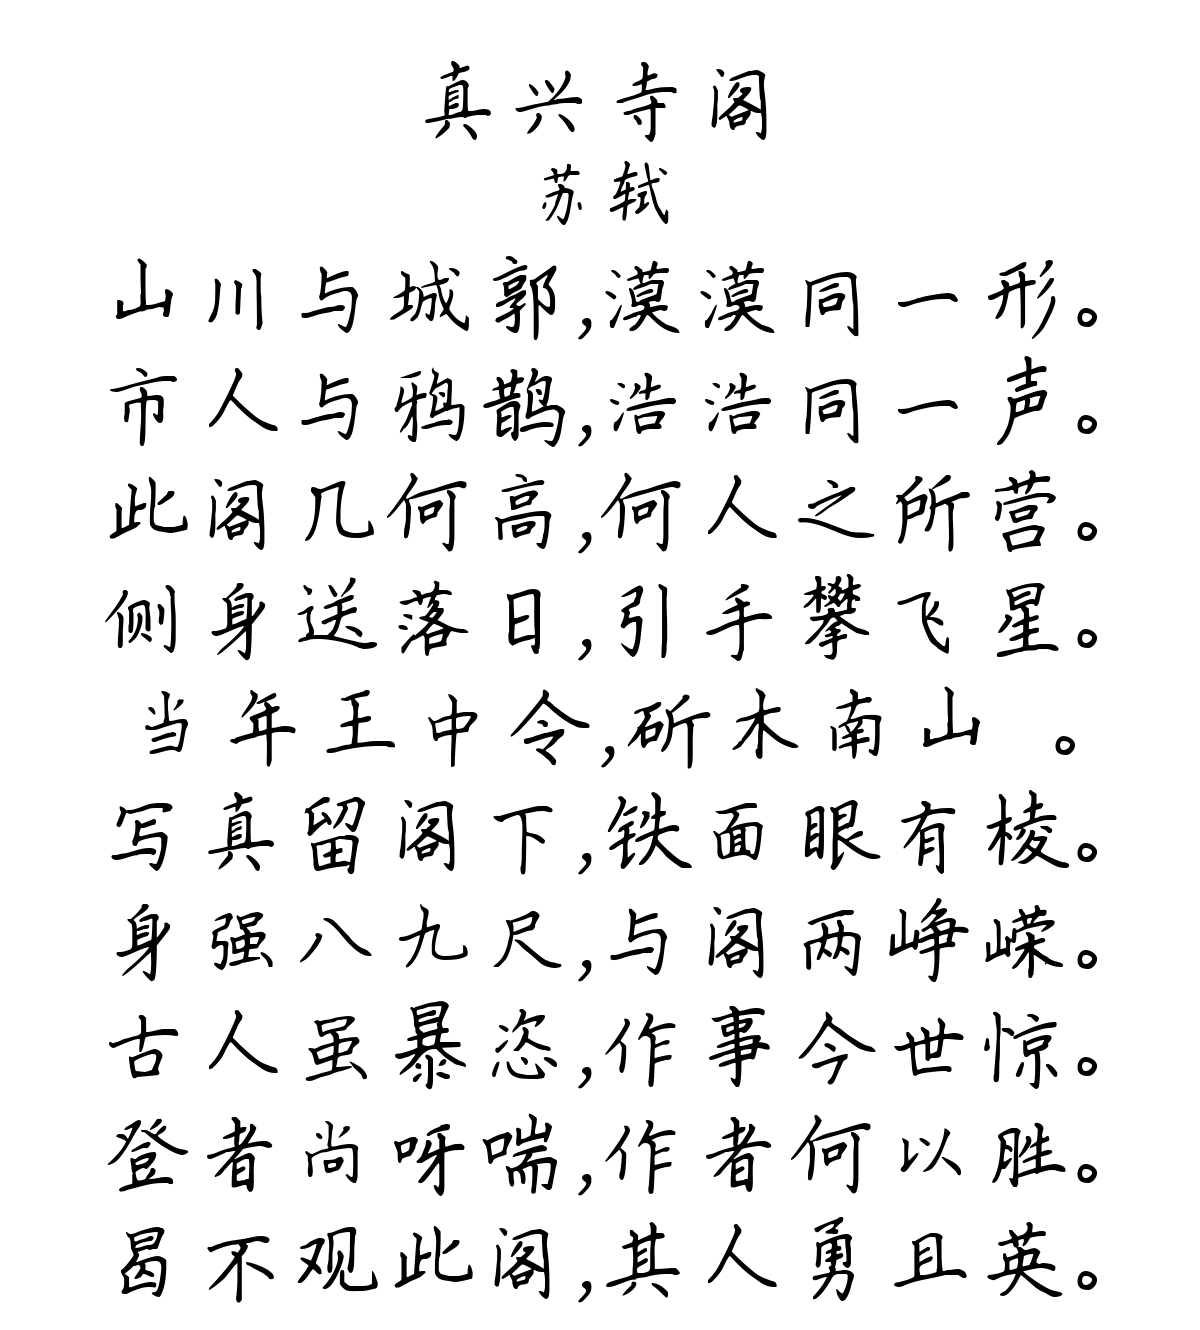 真兴寺阁
苏轼
山川与城郭,漠漠同一形。
市人与鸦鹊,浩浩同一声。
此阁几何高,何人之所营。
侧身送落日,引手攀飞星。
当年王中令,斫木南山 。
写真留阁下,铁面眼有棱。
身强八九尺,与阁两峥嵘。
古人虽暴恣,作事今世惊。
登者尚呀喘,作者何以胜。
曷不观此阁,其人勇且英。